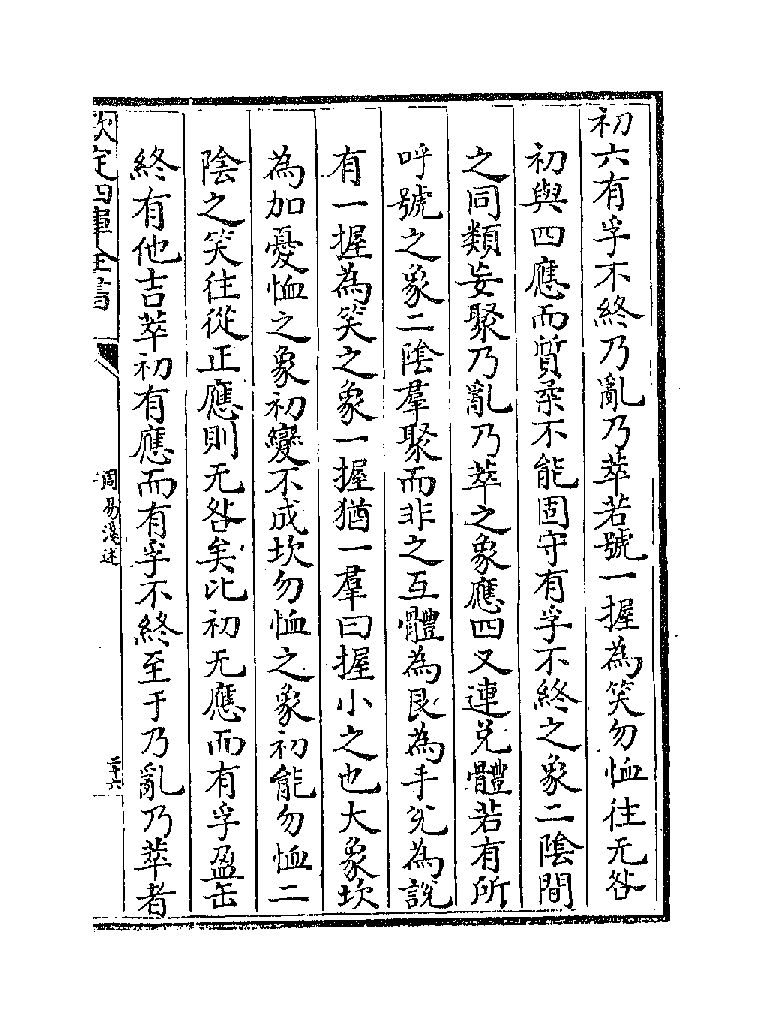 初六有孚不終乃亂乃萃若號一握為笑勿恤往无咎
初與四應而質柔不能固守有孚不終之象二陰間
之同類妄聚乃亂乃萃之象應四又連兌體若有所
呼號之象二陰羣聚而非之互體為艮為手兌為說
有一握為笑之象一握猶一羣曰握小之也大象坎
為加憂恤之象初變不成坎勿恤之象初能勿恤二
陰之笑往從正應則无咎矣比初无應而有孚盈缶
終有他吉萃初有應而有孚不終至于乃亂乃萃者
欽定四庫全書
周易淺述
二十六